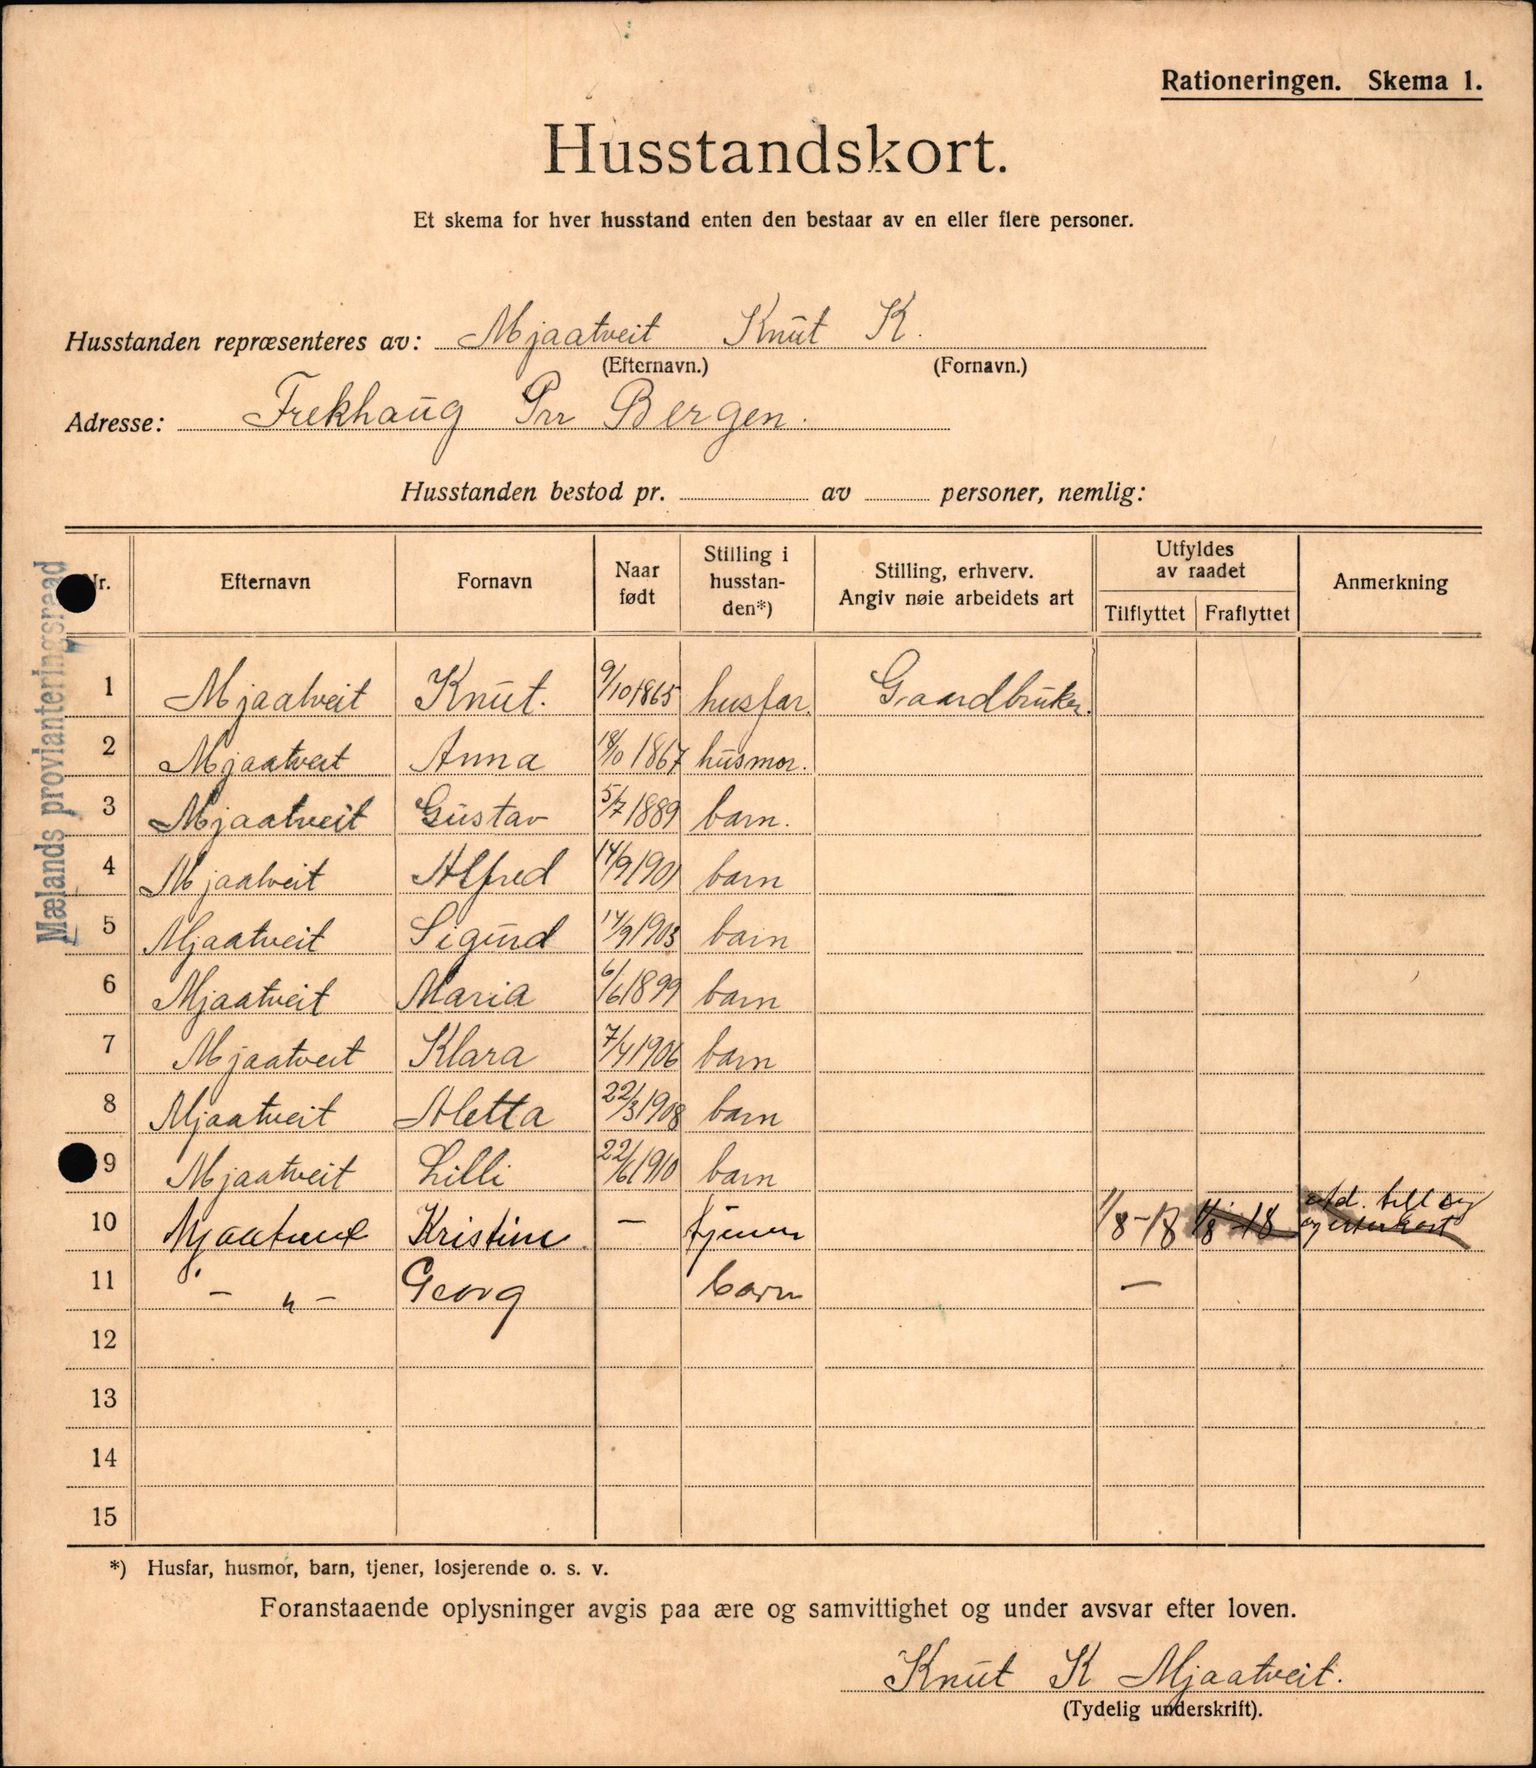 Rationeringen. Skema 1.
Husstandskort.
Et skema for hver husstand enten den bestaar av en eller flere personer.
Husstanden repræsenteres av: Mjaatveit Knut K.
(Efternavn.) (Fornavn.)
Adresse: Frekhaug Pr Bergen.
Husstanden bestod pr. av personer, nemlig:
Mælands provianteringsraad
Nr. Efternavn Fornavn Naar født Stilling i husstanden*) Stilling, erhverv. Angiv nøie arbeidets art Utfyldes av raadet Tilflyttet Fraflyttet Anmerkning
1 Mjaatveit Knut. 9/10 1865 husfar. Gaardbruker.
2 Mjaatveit Anna 18/10 1867 husmor.
3 Mjaatveit Gustav 5/7 1889 barn.
4 Mjaatveit Alfred 14/9 1901 barn
5 Mjaatveit Sigurd 14/9 1903 barn
6 Mjaatveit Maria 6/6 1899 barn
7 Mjaatveit Klara 7/4 1906 barn
8 Mjaatveit Aletta 22/3 1908 barn
9 Mjaatveit Lilli 22/6 1910 barn
10 Mjaatveit Kristine — tjener 1/8-18 1/8-18
11 — " — Georg barn —
12
13
14
15
*) Husfar, husmor, barn, tjener, losjerende o. s. v.
Foranstaaende oplysninger avgis paa ære og samvittighet og under avsvar efter loven.
Knut K Mjaatveit.
(Tydelig underskrift).